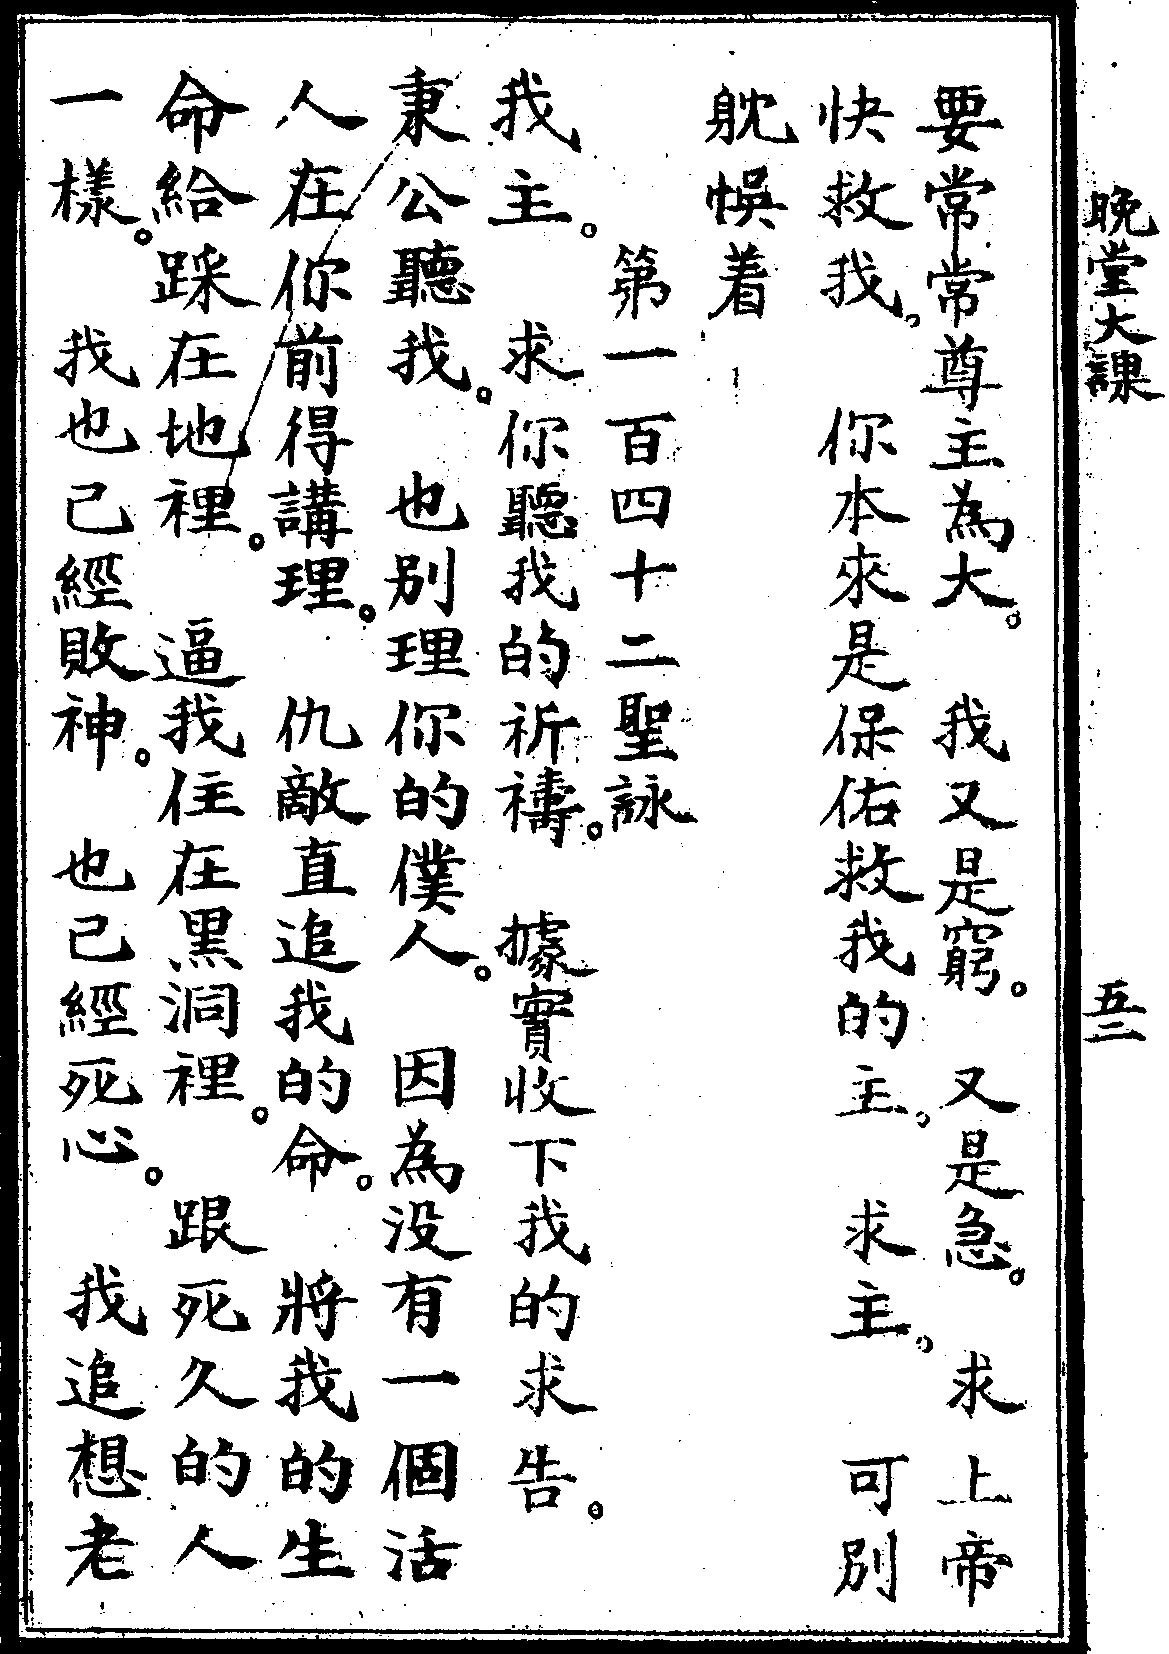 晚堂大課 五二
要常常尊主為大。 我又是窮。 又是急。 求上帝
快救我。 你本來是保佑救我的主。 求主。 可别
躭悞着
第一百四十二聖詠
我主。 求你聽我的祈禱。 據實收下我的求告。
秉公聽我。 也别理你的僕人。 因為没有一個活
人在你前得講理。 仇敵直追我的命。 將我的生
命給踩在地裡。 逼我住在黑洞裡。 跟死久的人
一樣。 我也已經敗神。 也已經死心。 我追想老